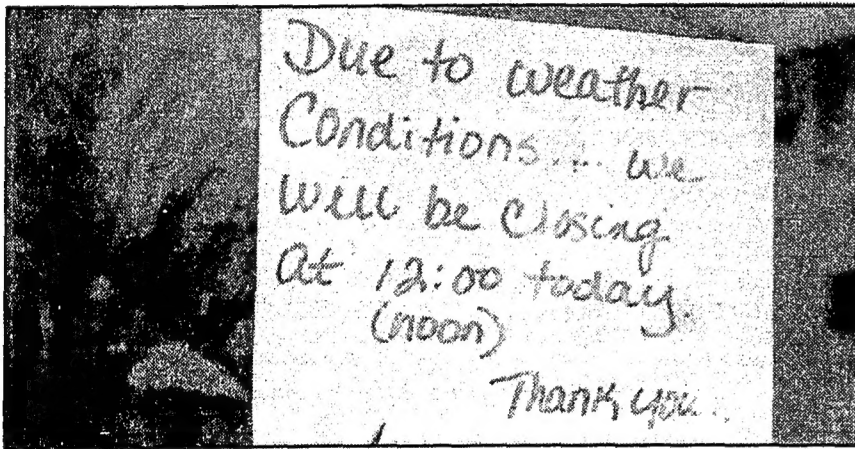 Due to weather
Conditions... we
Will be Closing
At 12:00 today.
(noon)
Thank you..